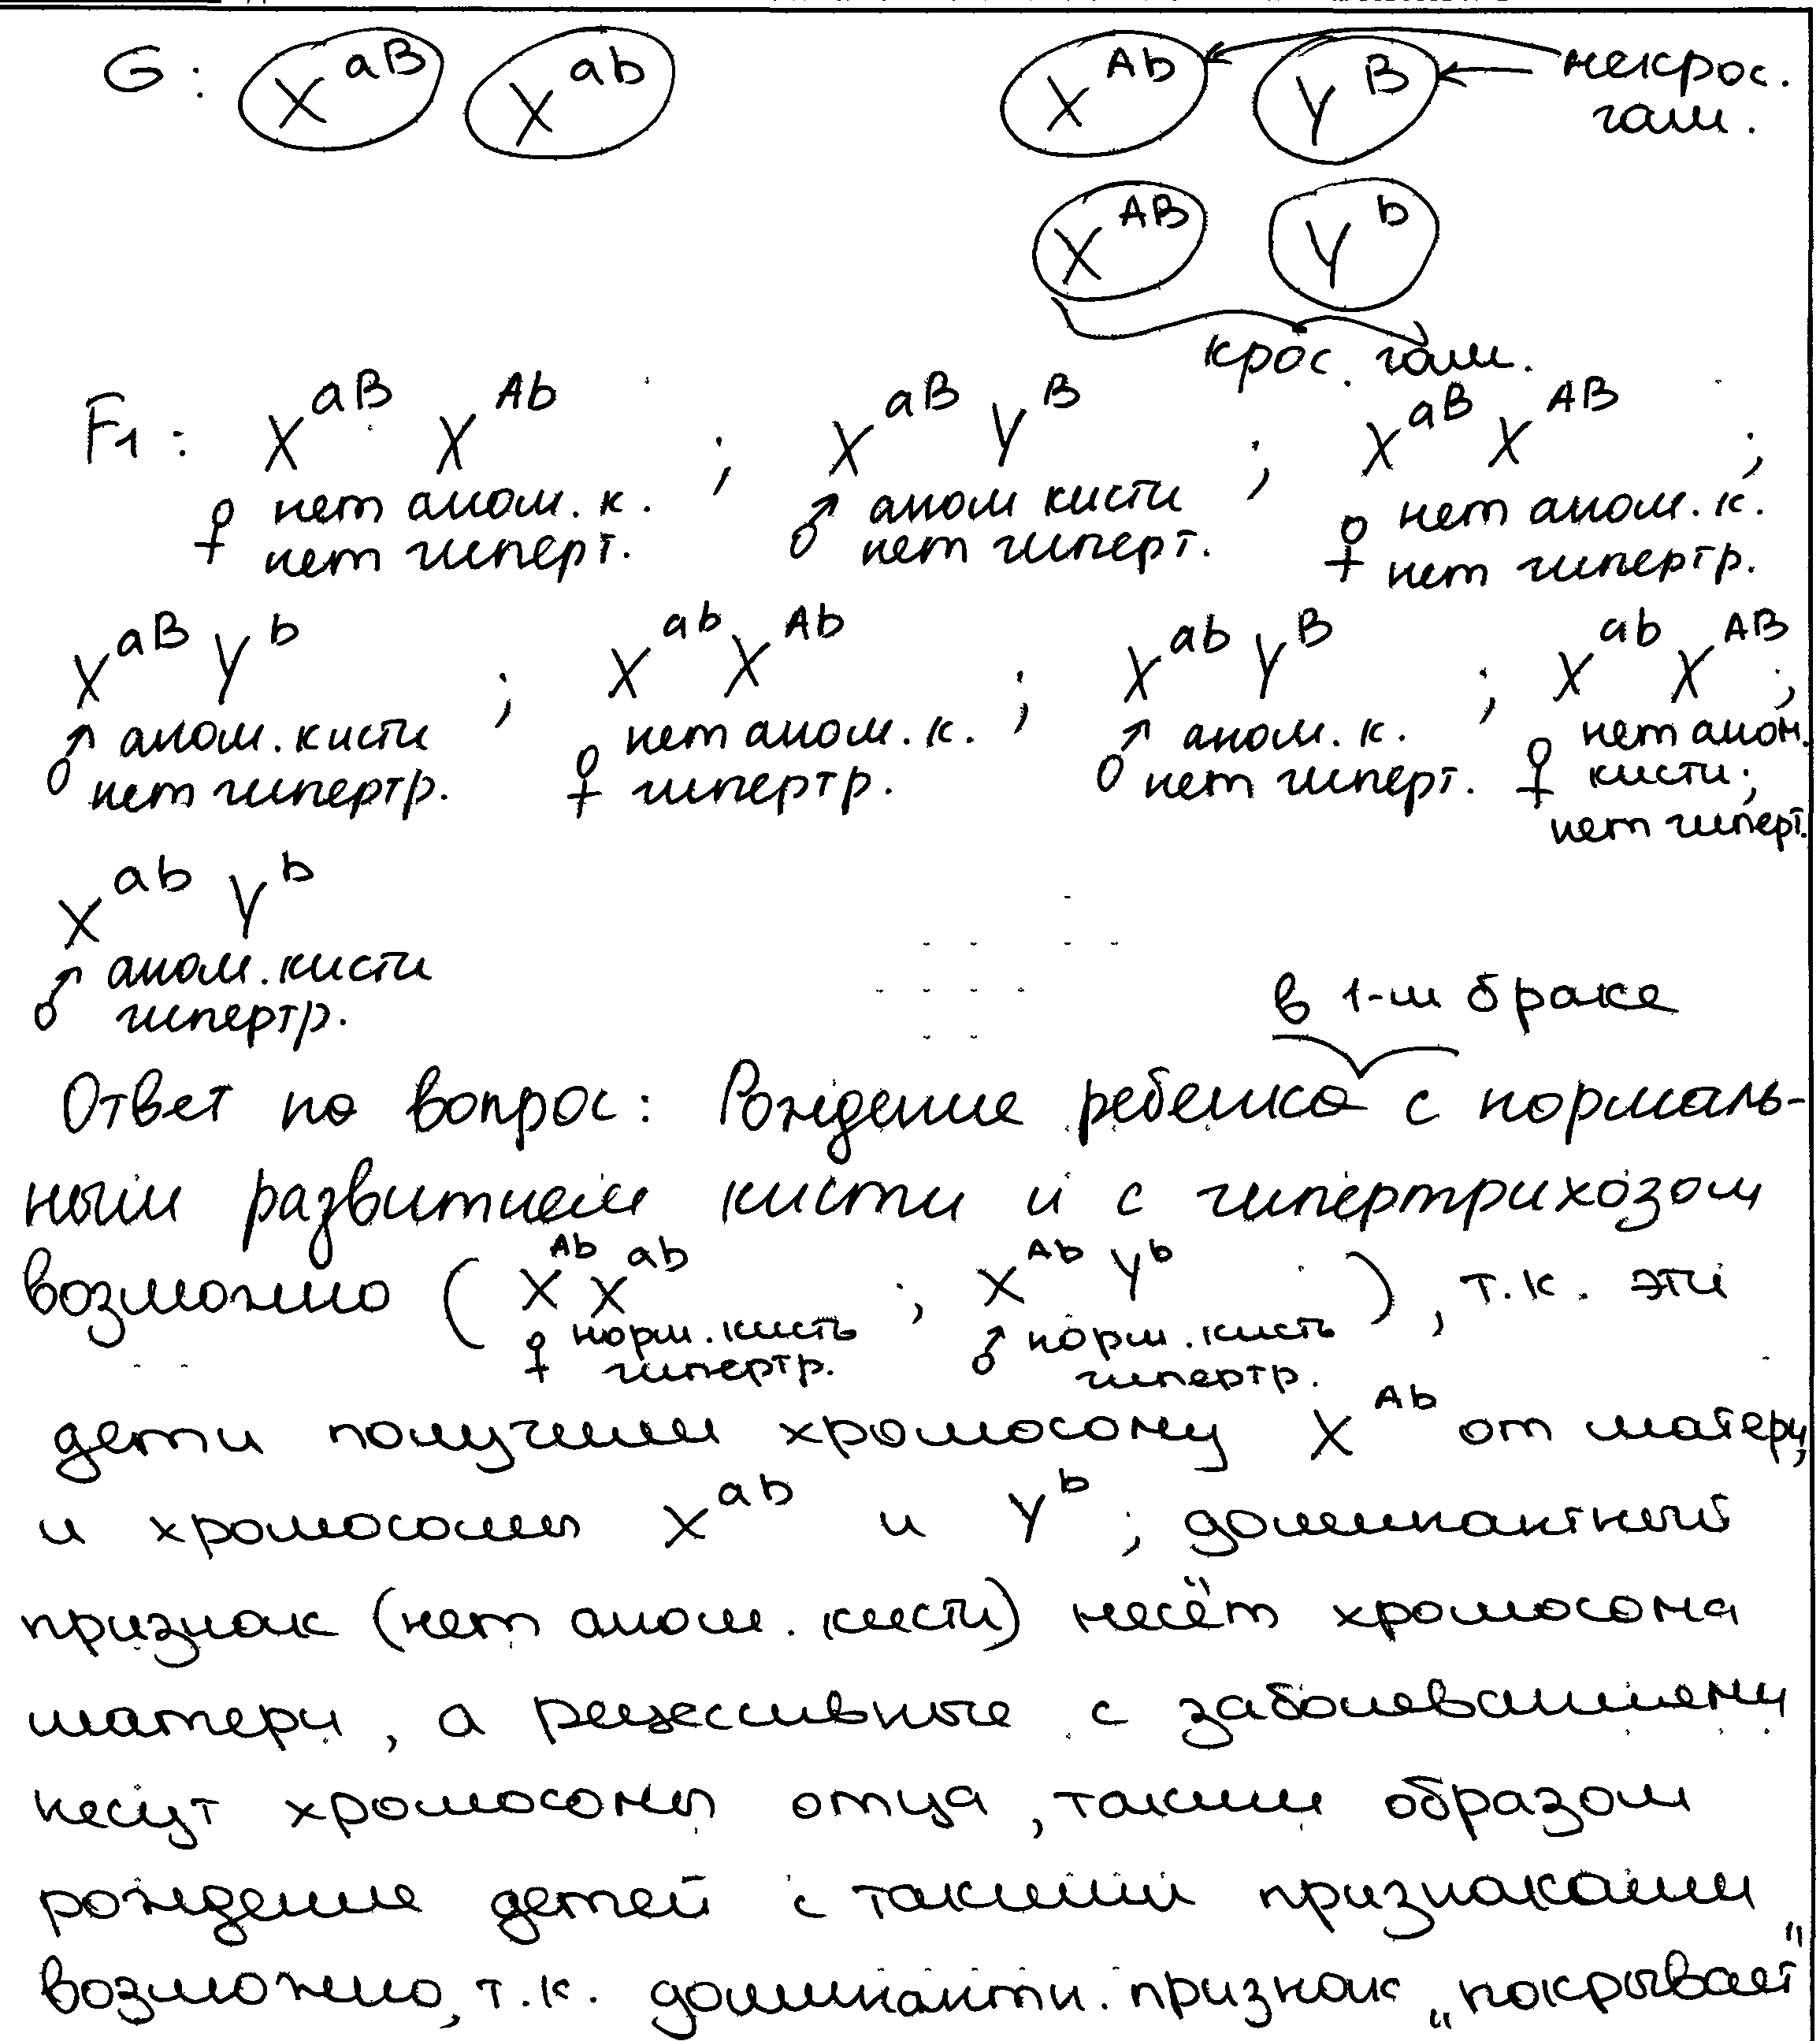 G: X^aB X^ab X^Ab Y^B некрос. гам.
X^AB Y^b
крос. гам.
F1: X^aB X^Ab ; X^aB Y^B ; X^aB X^AB ;
♀ нет аном. к. нет гиперт. ♂ аном кисти нет гиперт. ♀ нет аном. к. нет гипертр.
X^aB Y^b ; X^ab X^Ab ; X^ab Y^B ; X^ab X^AB ;
♂ аном. кисти нет гипертр. ♀ нет аном. к. гипертр. ♂ аном. к. нет гиперт. ♀ нет аном. кисти; нет гиперт.
X^ab Y^b
♂ аном. кисти
гипертр.
в 1-м браке
Ответ на вопрос: Рождение ребенка с нормаль-
ным развитием кисти и с гипертрихозом
возможно ( X^Ab X^ab ; X^Ab Y^b ), т.к. эти
♀ норм. кисть гипертр. ♂ норм. кисть гипертр.
дети получили хромосому X^Ab от матери,
и хромосомы X^ab и Y^b ; доминантный
признак (нет аном. кисти) несёт хромосома
матери, а рецессивные с заболеваниями
несут хромосомы отца, таким образом
рождение детей с такими признаками
возможно, т.к. доминантн. признак „покрывает"